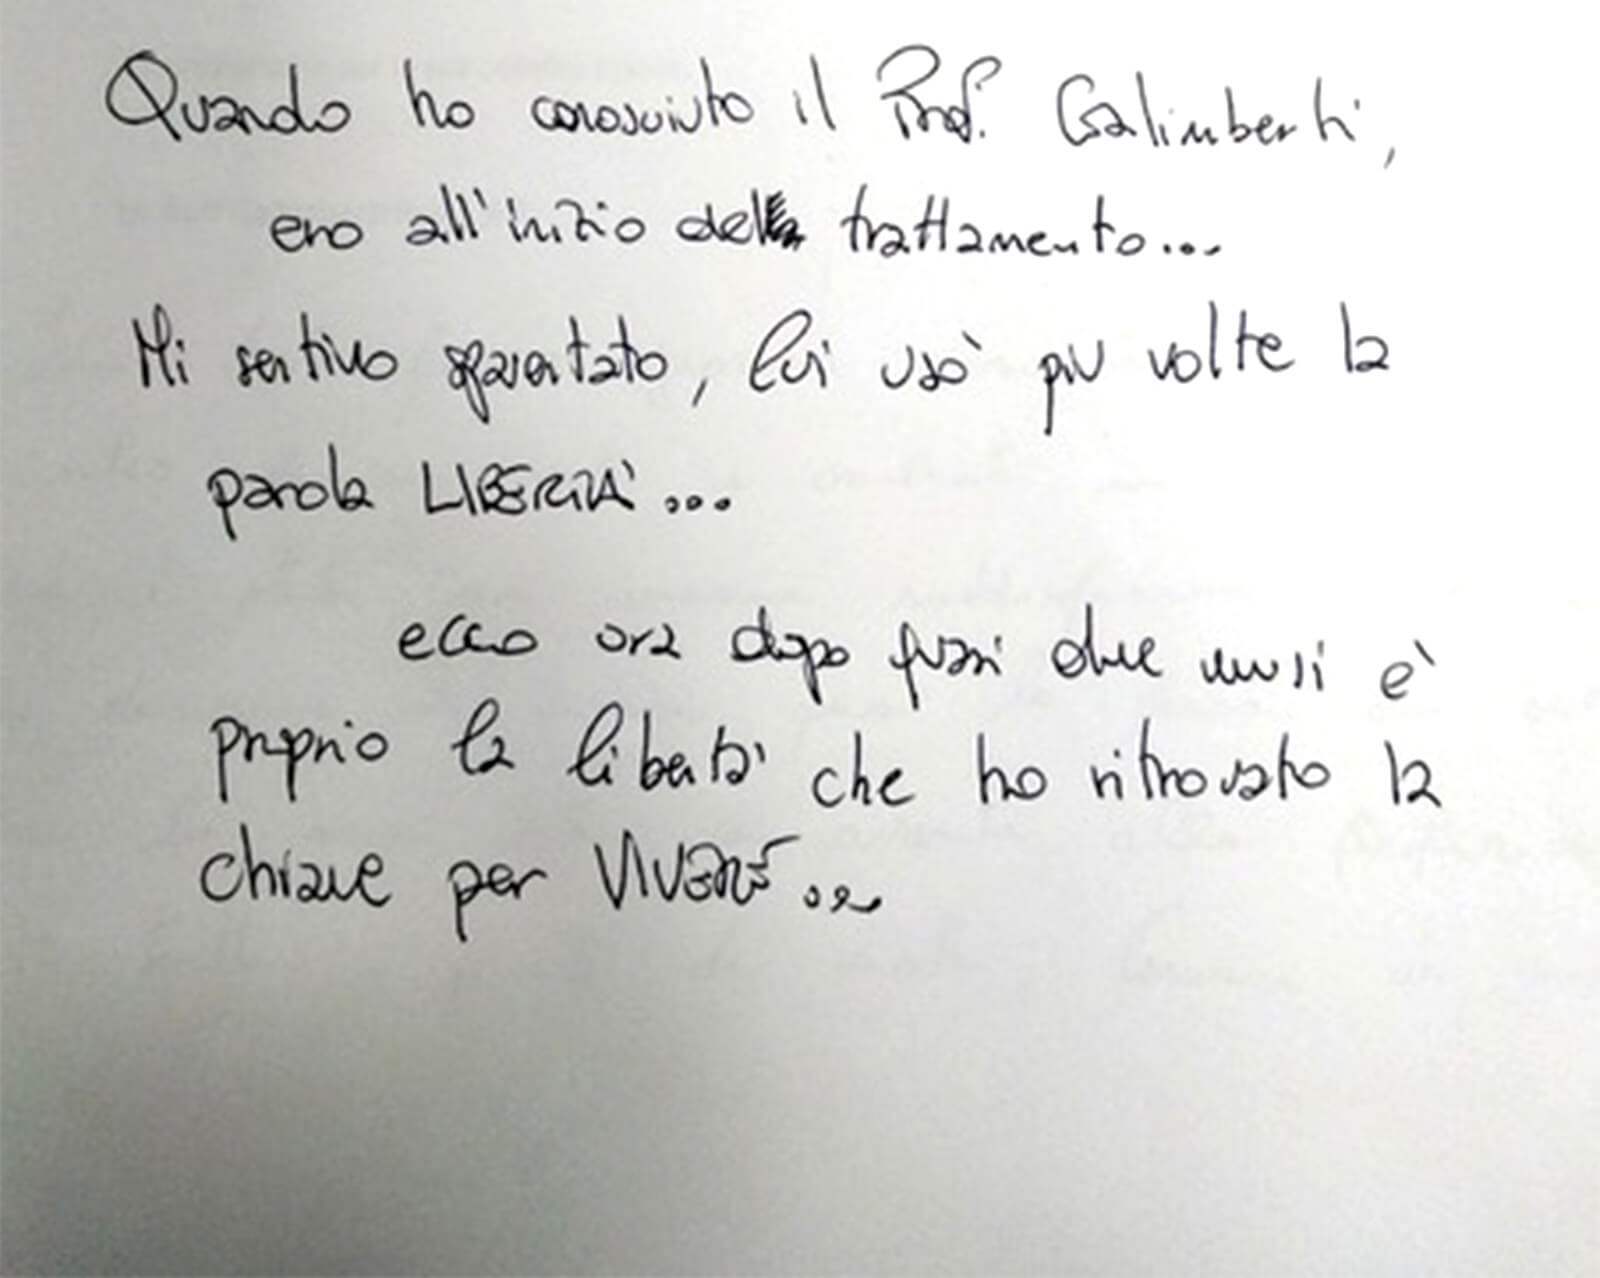 Quando ho conosciuto il Prof. Galimberti,
ero all'inizio del trattamento...
Mi sentivo spaventato, lui usò più volte la
parola LIBERTA'...
ecco ora dopo quasi due mesi è
proprio la libertà che ho ritrovato la
chiave per VIVERE...